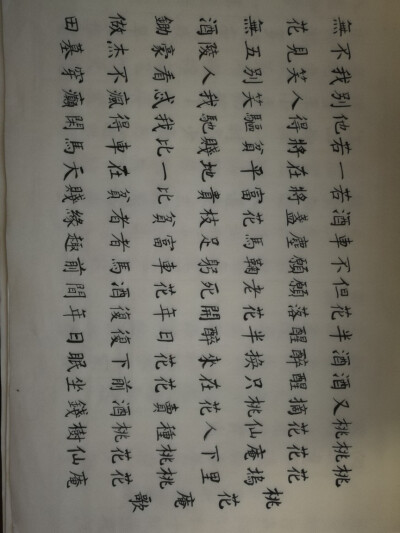 桃花庵歌
桃花塢里桃花庵
桃花庵下桃花仙
桃花仙人種桃樹
又摘桃花賣酒錢
酒醒只在花前坐
酒醉換來花下眠
半醒半醉日復日
花落花開年復年
但願老死花酒間
不願鞠躬車馬前
車塵馬足富者趣
酒盞花枝貧者緣
若將富貴比貧賤
一在平地一在天
若將貧賤比車馬
他得驅馳我得閑
別人笑我忒瘋癲
我笑別人看不穿
不見五陵豪杰墓
無花無酒鋤做田